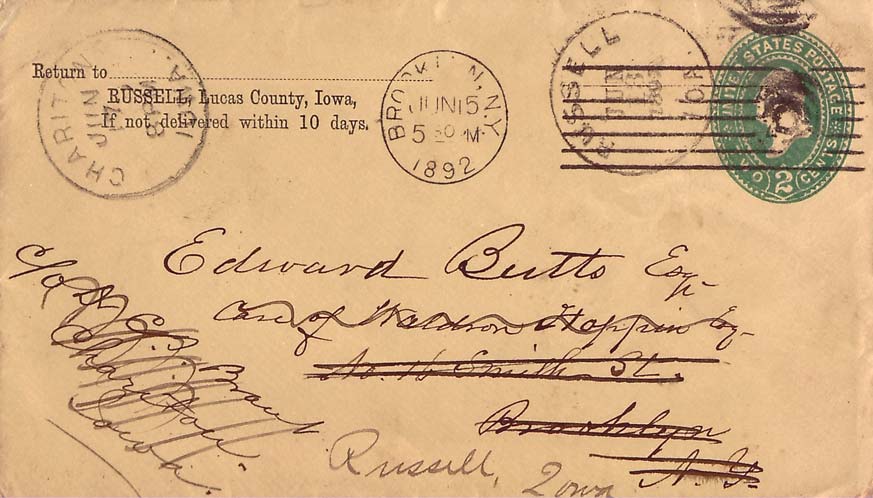 Return to
RUSSELL, Lucas County, Iowa,
If not delivered within 10 days.
CHARITON IOWA.
JUN
BROOKLYN, N.Y.
JUN 15
5 30 PM
1892
RUSSELL IOA
JUN
UNITED STATES POSTAGE
2 CENTS
Edward Butts Esq
Care of Waldron Hoppin Esq
No. 16 Smith St.
Brooklyn
N. Y.
Russell, Iowa
c/o
Brant
Chariton
Iowa.